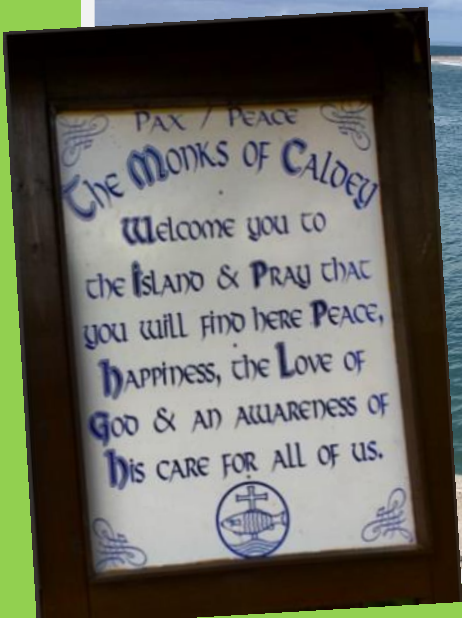 Pax / Peace
The Monks of Caldey
Welcome you to
the Island & Pray that
you will find here Peace,
happiness, the Love of
God & an awareness of
His care for all of us.